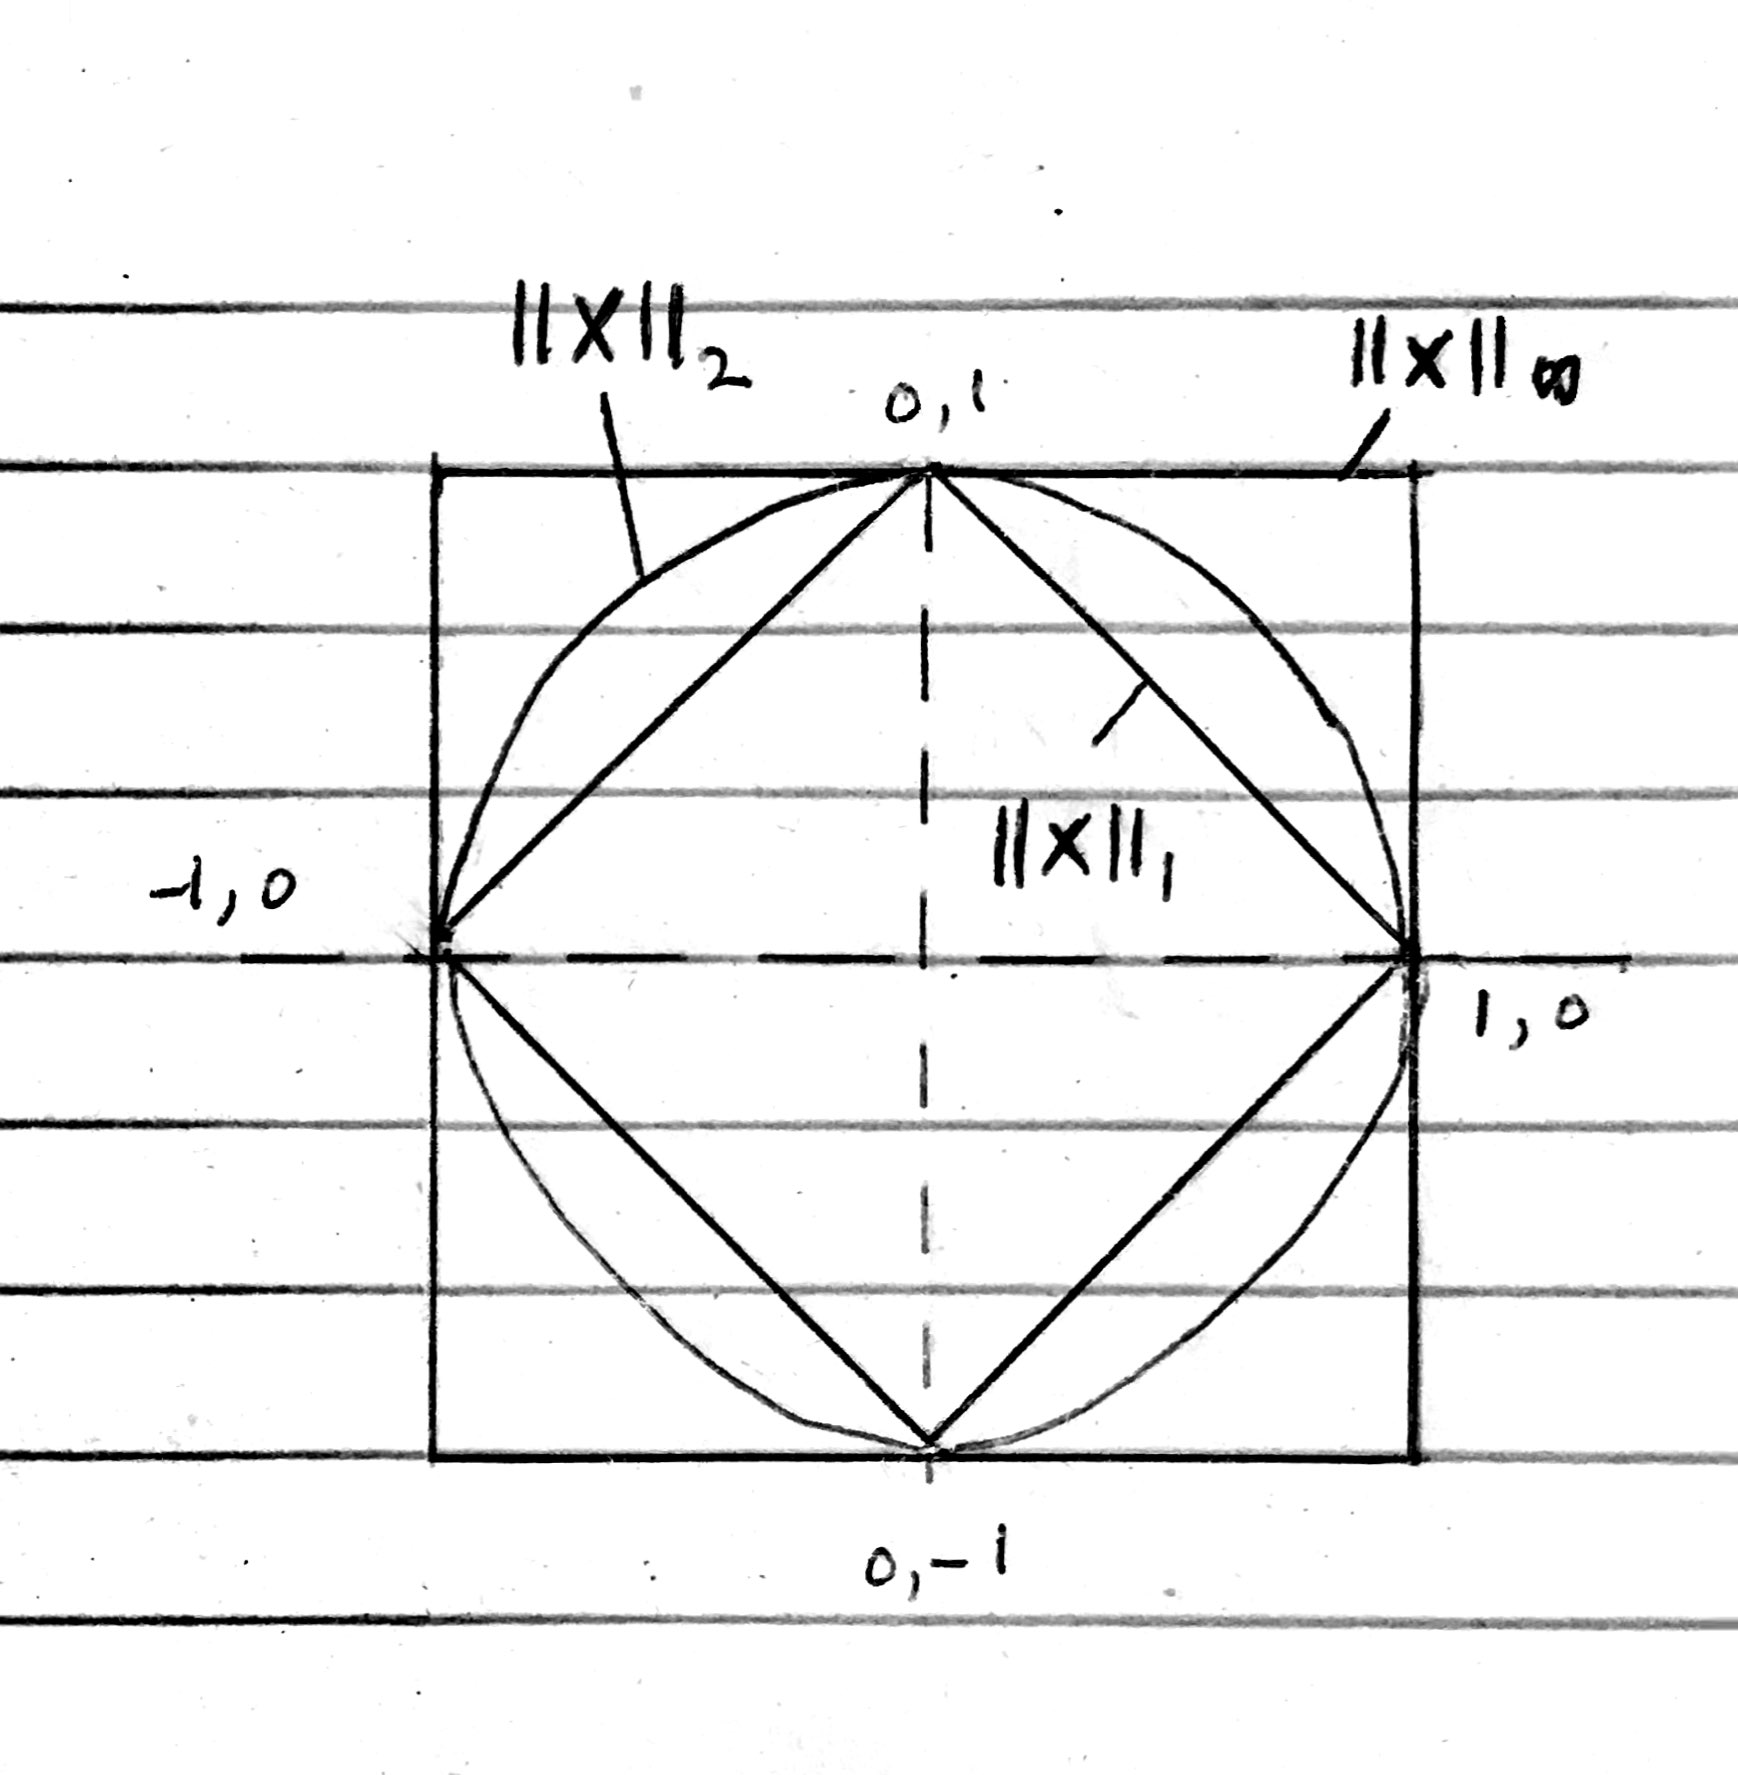 ||X||2
||X||∞
0,1
||X||1
-1,0
1,0
0,-1